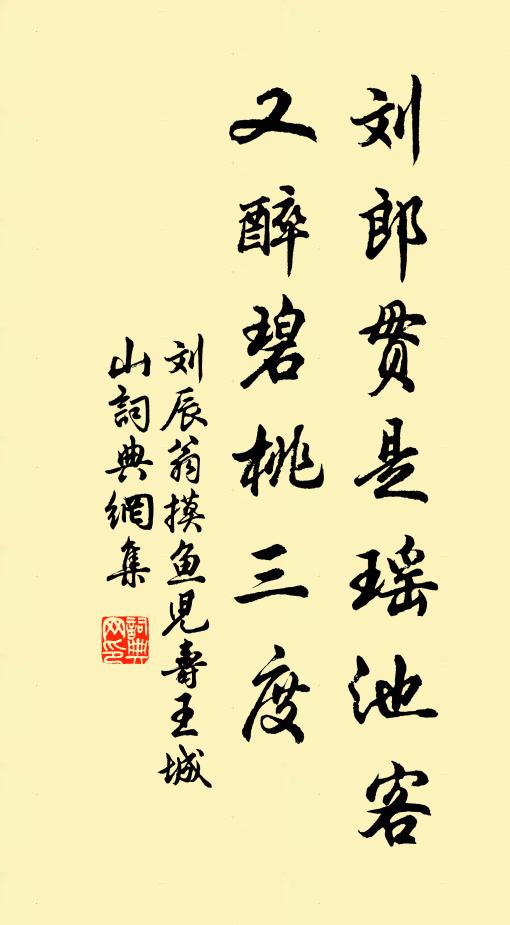 刘郎贯是瑶池客
又醉碧桃三度
刘辰翁摸鱼儿寿王城
山詞典網集
詞典
网印